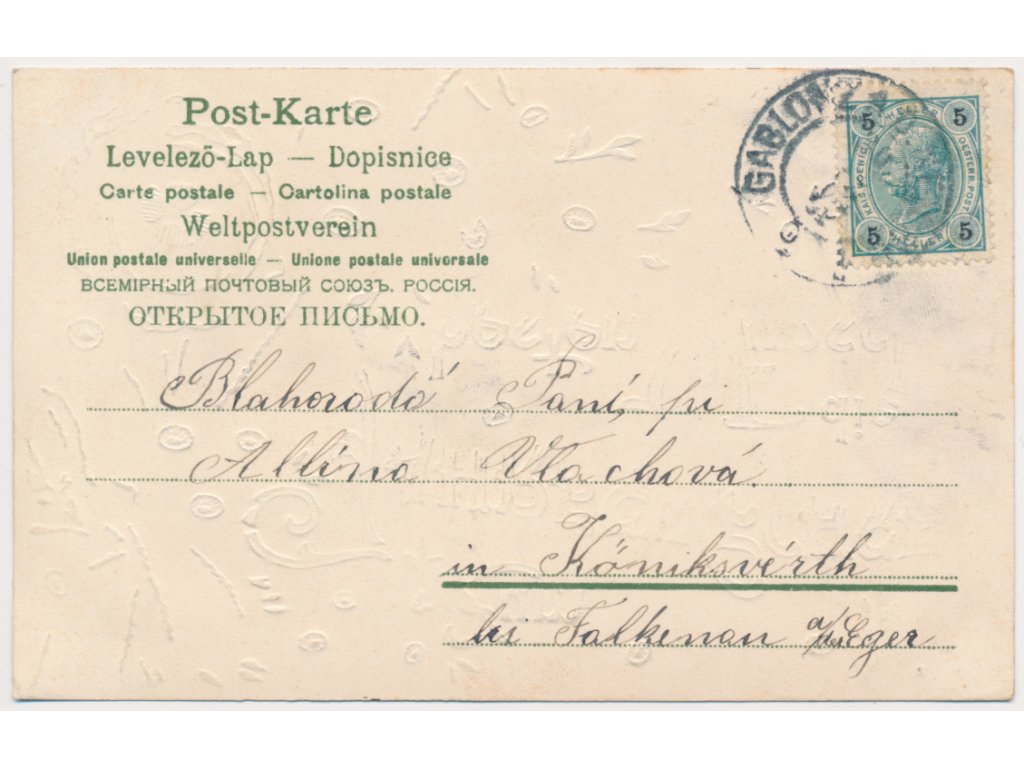 Post-Karte
Levelező-Lap — Dopisnice
Carte postale — Cartolina postale
Weltpostverein
Union postale universelle — Unione postale universale
ВСЕМІРНЫЙ ПОЧТОВЫЙ СОЮЗЪ. РОССІЯ.
ОТКРЫТОЕ ПИСЬМО.
GABLONZ
5 HELLER 5
OESTERR. POST
5 HELLER 5
Blahorodá Paní, pí
Allina Vlachová.
in Köniksvérth
bei Falkenau a/d Eger